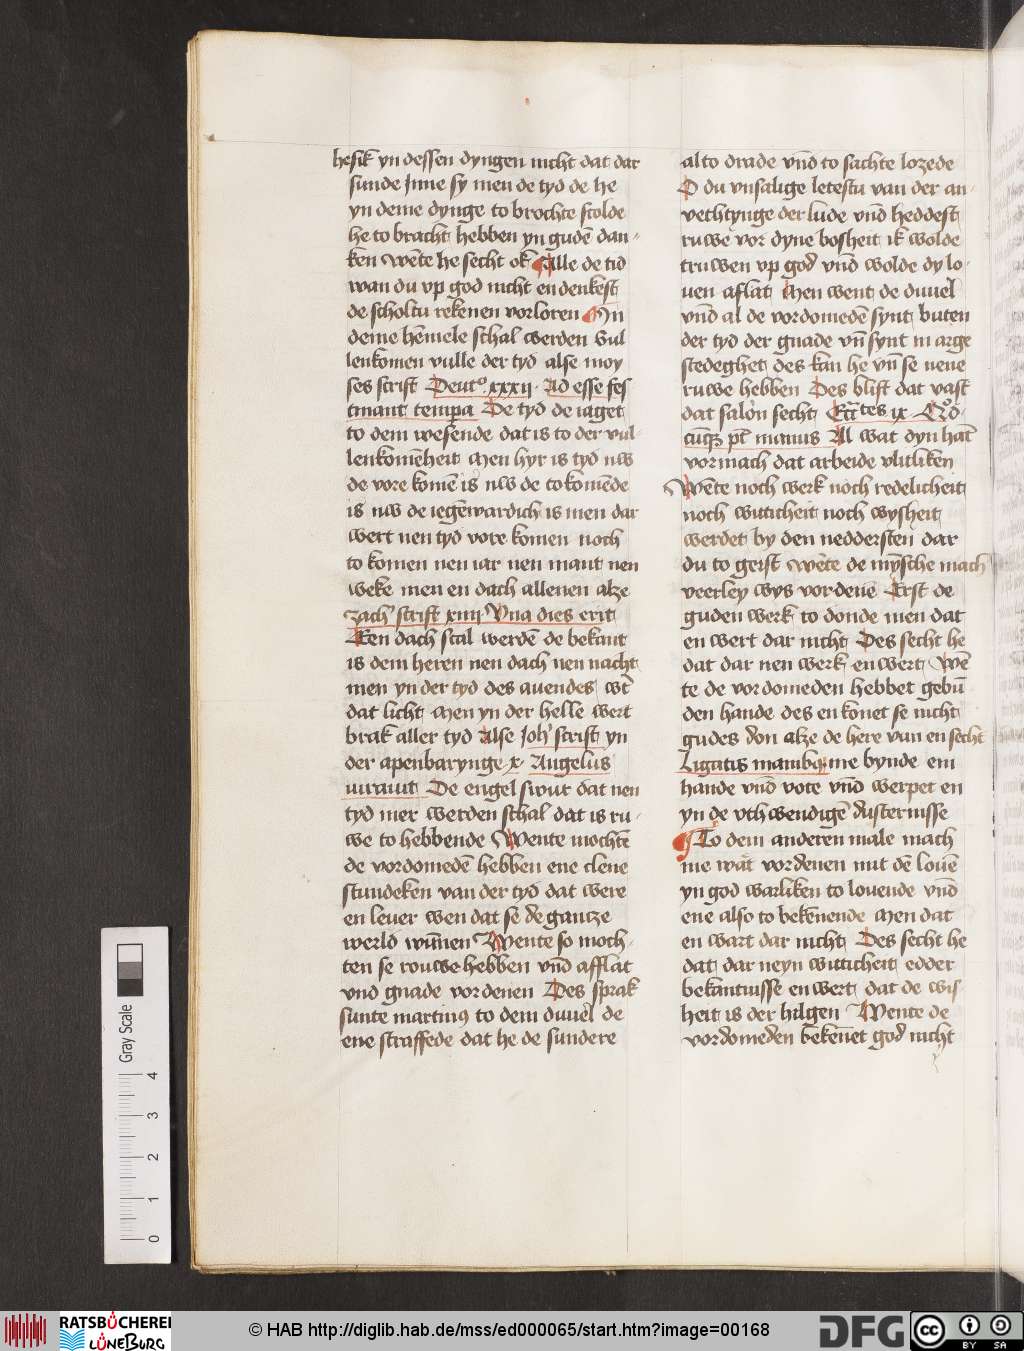 hesik yn dessen dyngen nicht dat dar
sunde Inne sy men de tyd de he
yn deme dynge to brochte scolde
he to bracht hebben yn gudē dan-
ken Wēte he secht ok Alle de tid
wan du vp god nicht en denkest
de scholtu rekenen vorloren In
deme hēmele schal werden vul
lenkomen vulle der tyd alse moy
ses scrift Deutᵒ xxxii Ad esse fes
tinant tempora De tyd de iaget
to dem wesende dat is to der vul-
lenkomēheit Men hyr is tyd nw
de vore komē is nw de to komēde
is nw de iegēwardich is men dar
wert nen tyd vore komen noch
to komen nen iar nen mant nen
weke men en dach allenen alze
zach' scrift xiiii Vna dies erit
Een dach scal werdē de bekant
is dem heren nen dach nen nacht
men yn der tyd des auendes wt
dat licht Men yn der helle wert
brak aller tyd Alse Joh' scrift yn
der apenbarynge x Angelus
iurauit De engel swur dat nen
tyd mer werden schal dat is ru-
we to hebbende Wente mochtē
de vordomedē hebben ene clene
stundeken van der tyd dat were
en leuer wen dat se de gantze
werld wūnen Wente so moch-
ten se rouwe hebben vnd afflat
vnd gnade vordenen Des sprak
sunte martinus to dem duuel de
ene straffede dat he de sundere
al to drade vnd to sachte lozede
O du vnsalige letestu van der an-
vechtynge der lude vnd heddest
ruwe vor dyne bosheit ik wolde
truwen vp god vnd wolde dy lo-
uen aflat Men went de duuel
vnd al de vordomedē synt buten
der tyd der gnade vn synt in arge
stedeghet des kan he vn se nene
ruwe hebben Des blift dat vast
dat salōn secht Ecctes ix Quod
cūque pt manus Al wat dyn hāt
vormach dat arbeide vlitliken
Wēte noch werk noch redelicheit
noch witticheit noch wysheit
werdet by den neddersten dar
du to geist Wēte de mysche mach
veerley wys vordenē Erst de
guden werk to donde men dat
en wert dar nicht Des secht he
dat dar nen werk en wert Wē
te de vordomeden hebbet gebū
den hande des en konet se nicht
gudes don alze de here van en secht
Ligatis manibus me bynde em
hande vnd vote vnd werpet en
yn de vthwendigē dusternisse
To dem anderen male mach
me wat vordenen mit dē louē
yn god warliken to louende vnd
ene also to bekēnende Men dat
en wart dar nicht Des secht he
dat dar neyn witticheit edder
bekantnisse en wert dat de wis-
heit is der hilgen Wente de
vordomeden bekēnet god nicht
Gray Scale
4
3
2
1
0
RATSBÜCHEREI
LÜNEBURG
© HAB http://diglib.hab.de/mss/ed000065/start.htm?image=00168
DFG
cc
BY SA